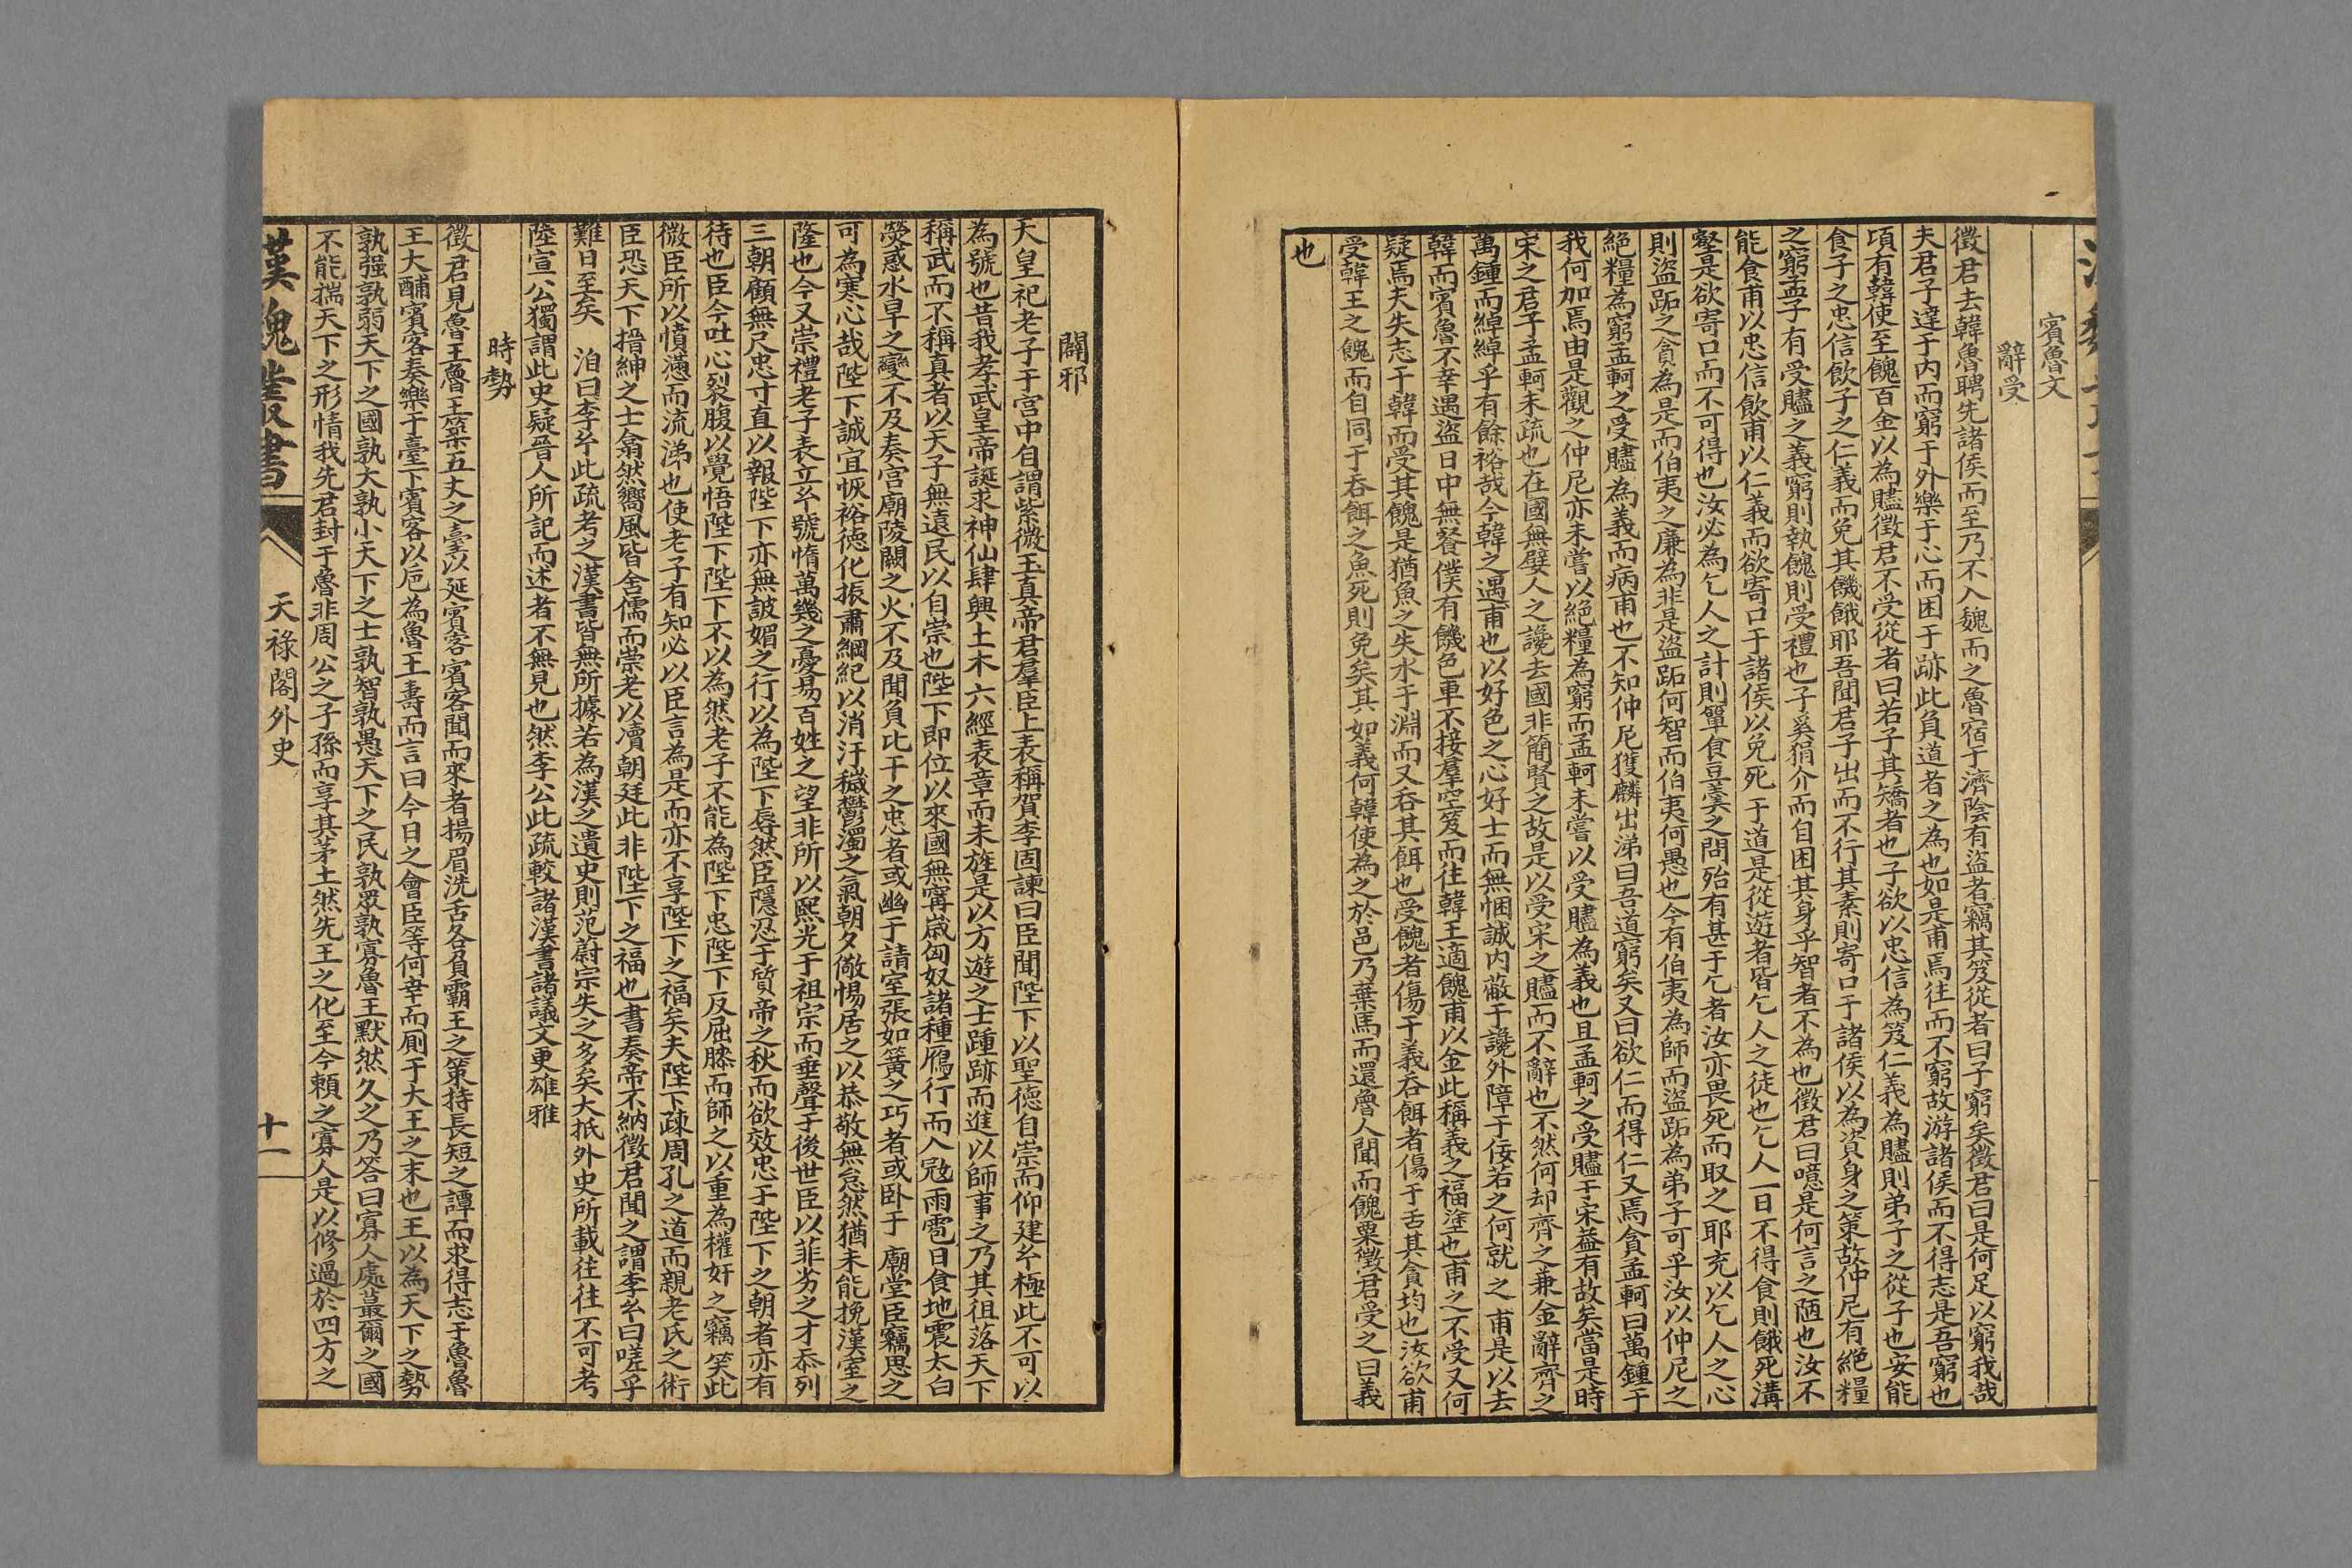 賓魯文
辭受
徵君去韓魯聘先諸侯而至乃不入魏而之魯宿于濟陰有盜者竊其笈從者曰子窮矣徵君曰是何足以窮我哉
夫君子達于內而窮于外樂于心而困于跡此負道者之為也如是甫焉往而不窮故游諸侯而不得志是吾窮也
頃有韓使至餽百金以為贐徵君不受從者曰若子其矯者也子欲以忠信為笈仁義為贐則弟子之從子也安能
食子之忠信飲子之仁義而免其饑餓耶吾聞君子出而不行其素則寄口于諸侯以為資身之策故仲尼有絕糧
之窮孟子有受贐之義窮則執餽則受禮也子奚狷介而自困其身乎智者不為也徵君曰噫是何言之陋也汝不
能食甫以忠信飲甫以仁義而欲寄口于諸侯以免死于道是從遊者皆乞人之徒也乞人一日不得食則餓死溝
壑是欲寄口而不可得也汝必為乞人之計則簞食豆羹之問殆有甚于乞者汝亦畏死而取之耶充以乞人之心
則盜跖之貪為是而伯夷之廉為非是盜跖何智而伯夷何愚也今有伯夷為師而盜跖為弟子可乎汝以仲尼之
絕糧為窮孟軻之受贐為義而病甫也不知仲尼獲麟出涕曰吾道窮矣又曰欲仁而得仁又焉貪孟軻曰萬鍾于
我何加焉由是觀之仲尼亦未嘗以絕糧為窮而孟軻未嘗以受贐為義也且孟軻之受贐于宋益有故矣當是時
宋之君子孟軻未疏也在國無嬖人之讒去國非簡賢之故是以受宋之贐而不辭也不然何却齊之兼金辭齊之
萬鍾而綽綽乎有餘裕哉今韓之遇甫也以好色之心好士而無悃誠內蔽于讒外障于佞若之何就之甫是以去
韓而賓魯不幸遇盜日中無餐僕有饑色車不接羣空笈而往韓王適餽甫以金此稱義之福塗也甫之不受又何
疑焉夫失志于韓而受其餽是猶魚之失水于淵而又呑其餌也受餽者傷于義呑餌者傷于舌其貪均也汝欲甫
受韓王之餽而自同于呑餌之魚死則免矣其如義何韓使為之於邑乃棄馬而還魯人聞而餽粟徵君受之曰義
也
闢邪
天皇祀老子于宮中自謂紫微玉真帝君羣臣上表稱賀李固諫曰臣聞陛下以聖德自崇而仰建幺極此不可以
為號也昔我孝武皇帝誕求神仙肆興土木六經表章而未旌是以方遊之士踵跡而進以師事之乃其徂落天下
稱武而不稱真者以天子無遠民以自崇也陛下即位以來國無寧歲匈奴諸種鴈行而入寇雨雹日食地震太白
熒惑水旱之變不及奏宮廟陵闕之火不及聞負比干之忠者或幽于請室張如簧之巧者或卧于廟堂臣竊思之
可為寒心哉陛下誠宜恢裕德化振肅綱紀以消汙穢鬱濁之氣朝夕儆惕居之以恭敬無怠然猶未能挽漢室之
隆也今又崇禮老子表立幺號惰萬幾之憂易百姓之望非所以熙光于祖宗而垂聲于後世臣以菲劣之才忝列
三朝顧無尺忠寸直以報陛下亦無詖媚之行以為陛下辱然臣隱忍于質帝之秋而欲效忠于陛下之朝者亦有
待也臣今吐心裂腹以覺悟陛下陛下不以為然老子不能為陛下忠陛下反屈膝而師之以重為權奸之竊笑此
微臣所以憤懣而流涕也使老子有知必以臣言為是而亦不享陛下之福矣夫陛下疎周孔之道而親老氏之術
臣恐天下搢紳之士翕然嚮風皆舍儒而崇老以凟朝廷此非陛下之福也書奏帝不納徵君聞之謂李幺曰嗟乎
難日至矣　洎曰李幺此疏考之漢書皆無所據若為漢之遺史則范蔚宗失之多矣大抵外史所載往往不可考
陸宣公獨謂此史疑晉人所記而述者不無見也然李公此疏較諸漢書諸議文更雄雅
時勢
徵君見魯王魯王築五丈之臺以延賓客賓客聞而來者揚眉洗舌各負霸王之策持長短之譚而求得志于魯魯
王大酺賓客奏樂于臺下賓客以巵為魯王壽而言曰今日之會臣等何幸而厠于大王之末也王以為天下之勢
孰强孰弱天下之國孰大孰小天下之士孰智孰愚天下之民孰眾孰寡魯王默然久之乃答曰寡人處蕞爾之國
不能揣天下之形情我先君封于魯非周公之子孫而享其茅土然先王之化至今賴之寡人是以修過於四方之
漢魏叢書
天祿閣外史
十一